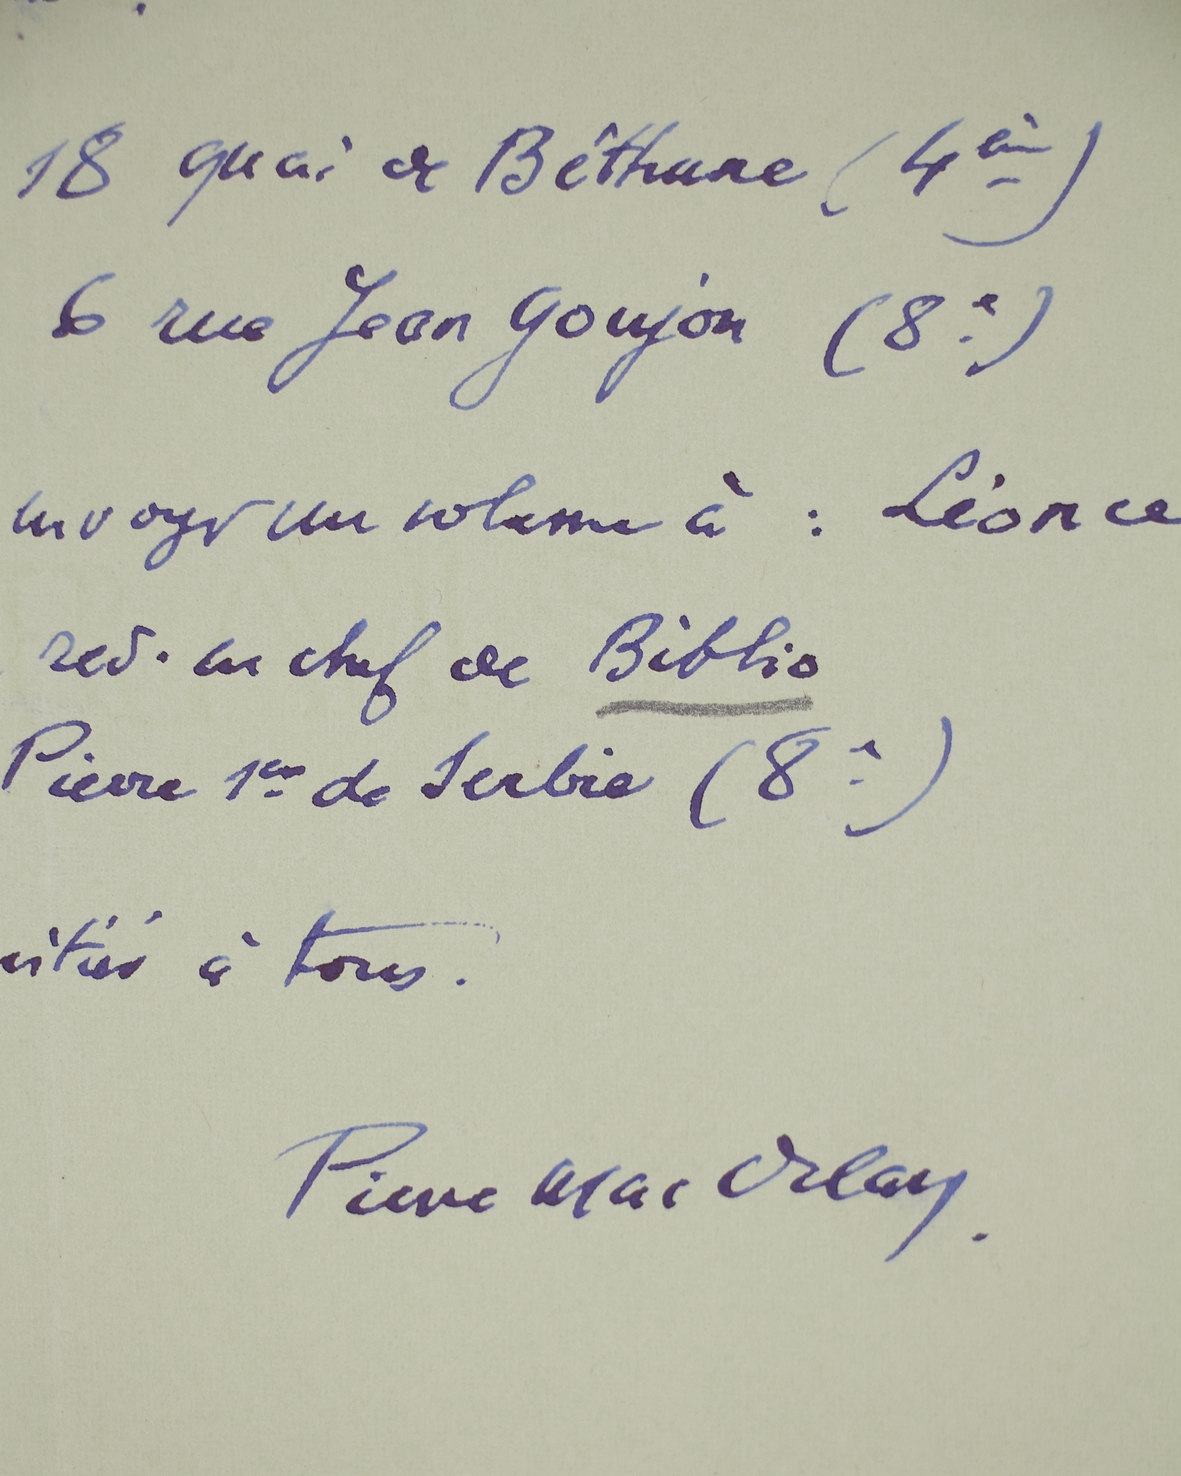 18 quai de Béthune (4èm)
6 rue Jean Goujon (8e)
envoyer un volume à : Léonce
red. en chef de Biblio
Pierre 1er de Serbie (8e)
mitiés à tous.
Pierre Mac Orlan.